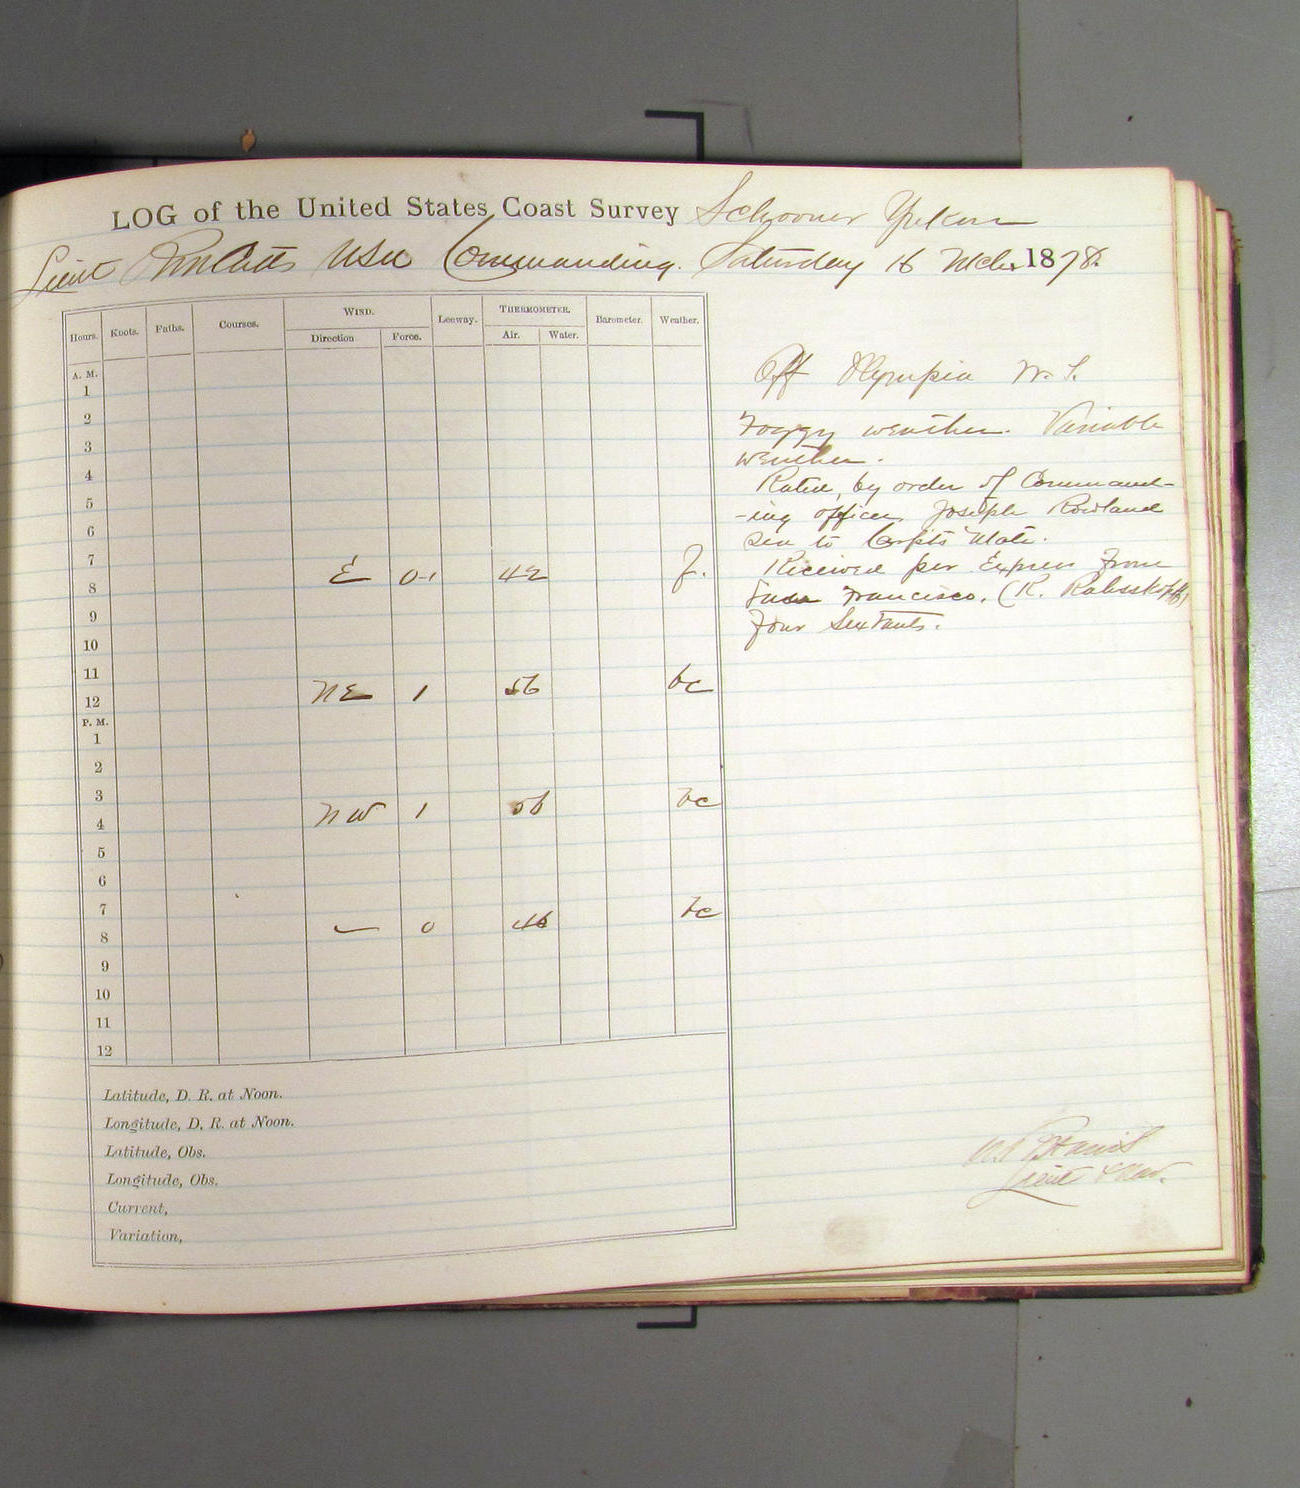 LOG of the United States Coast Survey Schooner Yukon
Lieut USN Commanding. Saturday 16 Mch. 1878.
Hours. Knots. Faths. Courses. WIND. Leeway. THERMOMETER. Barometer. Weather.
Direction Force. Air. Water.
A. M.
1
2
3
4
5
6
7
8 E 0-1 42 f.
9
10
11
12 NE 1 56 bc
P. M.
1
2
3
4 NW 1 56 bc
5
6
7
8 — 0 46 bc
9
10
11
12
Latitude, D. R. at Noon.
Longitude, D. R. at Noon.
Latitude, Obs.
Longitude, Obs.
Current,
Variation,
Off Olympia W. T.
Foggy weather. Variable
weather.
Rated, by order of Command-
-ing officer, Joseph Rowland
Sea to Carpts Mate.
Received per Express from
San Francisco. (R.
four Sextants.
Lieut & Nav.